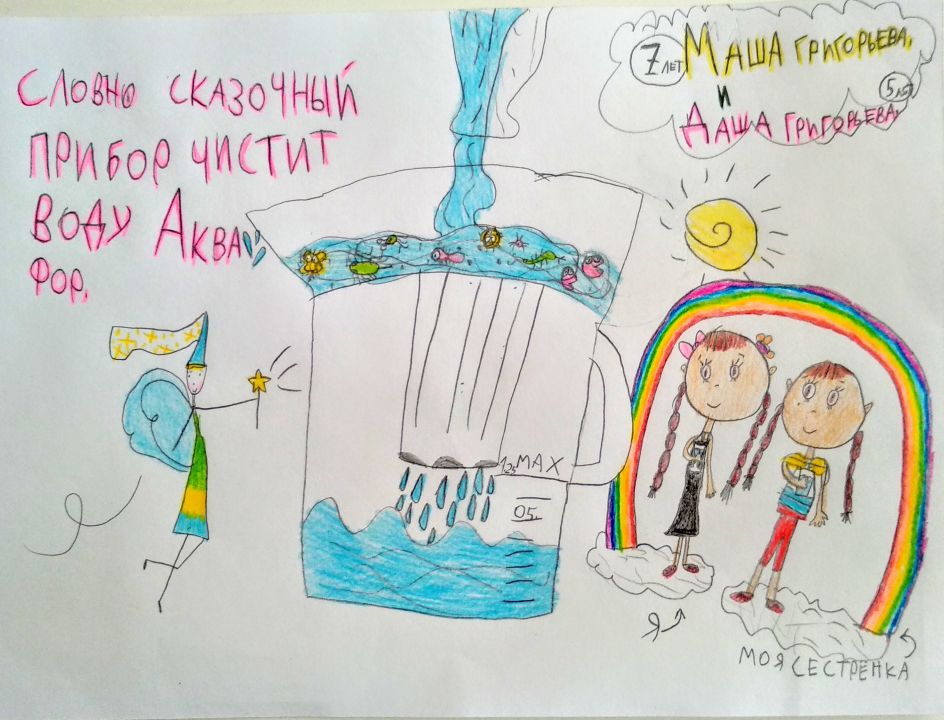 СЛОВНО СКАЗОЧНЫЙ
ПРИБОР ЧИСТИТ
ВОДУ АКВА
ФОР.
7 ЛЕТ МАША ГРИГОРЬЕВА,
И
5 л.
ДАША ГРИГОРЬЕВА,
1,25 MAX
05
Я
МОЯ СЕСТРЁНКА